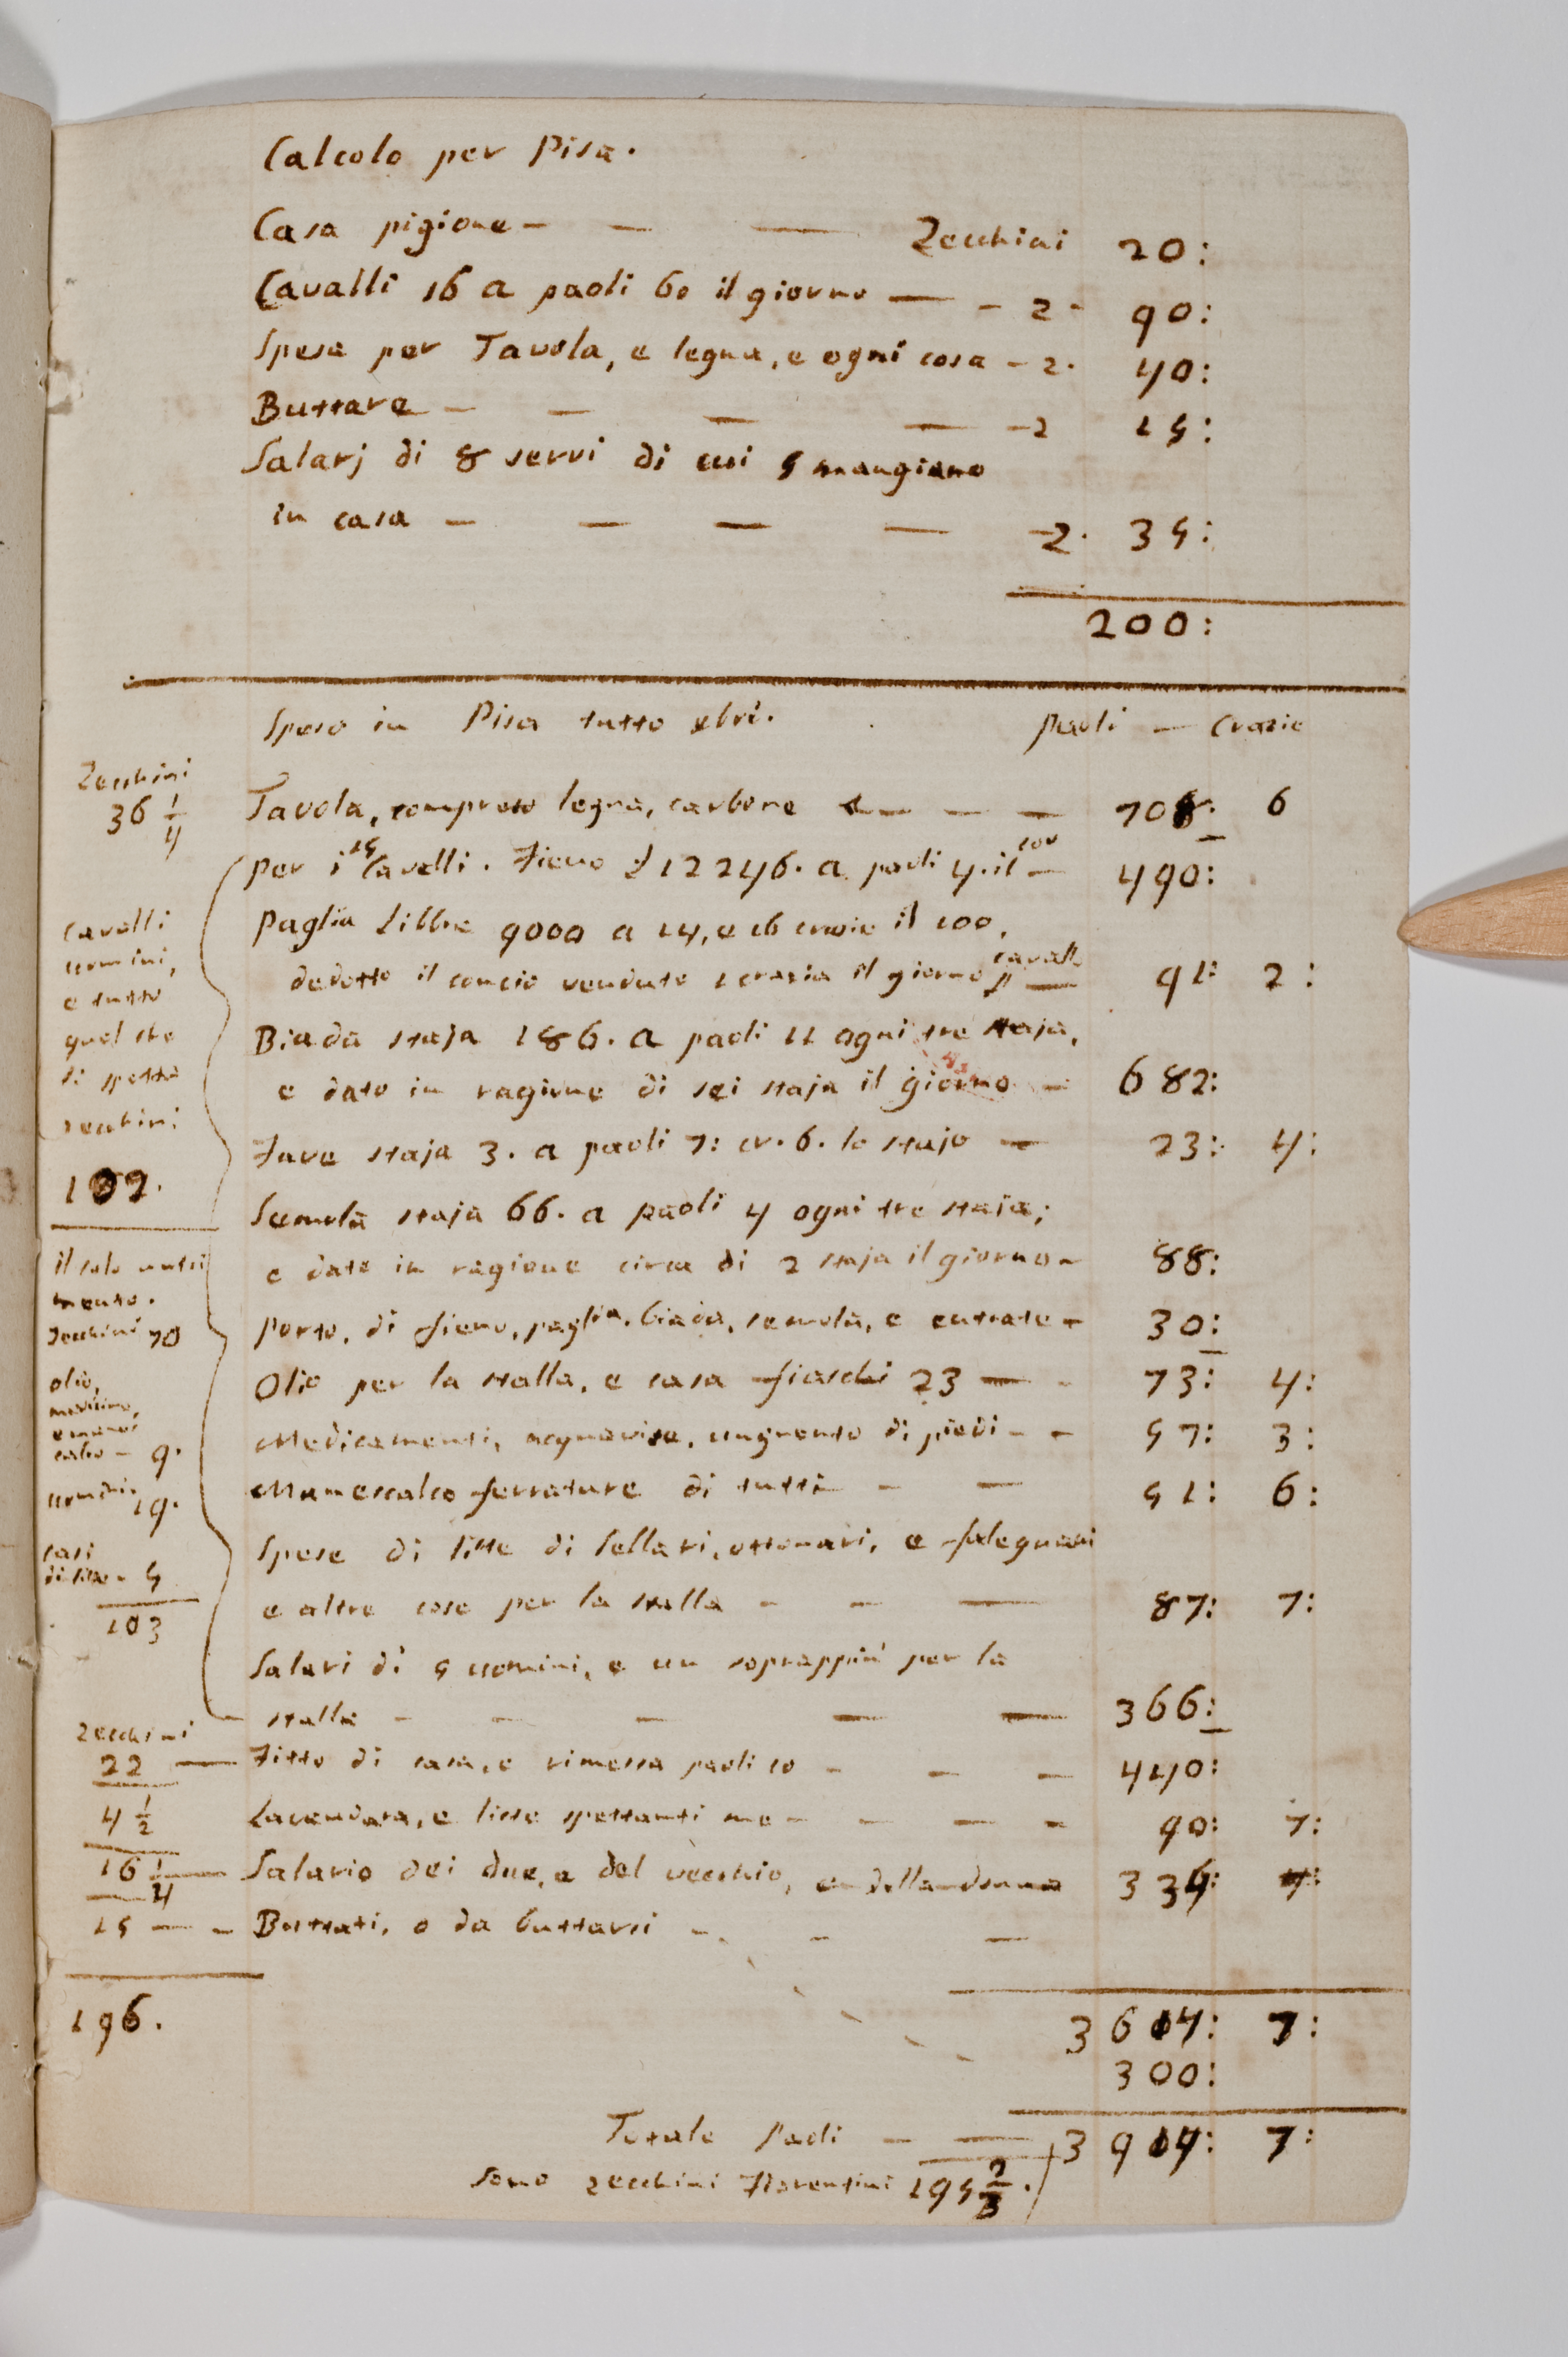 Calcolo per Pisa.
Casa pigione — — — Zecchini 20:
Cavalli 16 a paoli 60 il giorno — - z - 90:
Spesa per Tavola, e legna, e ogni cosa - z. 40:
Buttare — — — — - z 15:
Salarj di 8 servi di cui 5 mangiano
in casa — — — — - z. 35:
200:
Speso in Pisa tutto xbri. paoli — Crazie
Zecchini
36 1/4 Tavola, compreso legna, carbone — — — 708: 6
per i 15 Cavalli. Fieno 12246. a paoli 4. il 100 — 490:
Paglia Libbre 9000 a 14, e 16 crazie il 100,
dedotto il concio venduto 1 crazia il giorno cavallo — 91: 2:
Biada staja 186. a paoli 11 ogni tre staja,
e dato in ragione di sei staja il giorno — 682:
Fave staja 3. a paoli 7: cr. 6. lo stajo — 23: 4:
Semola staja 66. a paoli 4 ogni tre staja;
e data in ragione circa di 2 staja il giorno - 88:
Porto, di fieno, paglia, biada, semola, e entrate - 30:
Olio per la stalla, e casa fiaschi 23 — - 73: 4:
Medicamenti, acquavite, unguento di piedi - - 57: 3:
Manescalco ferrature di tutti - — 51: 6:
Spese di liste di Sellari, ottonari, e falegnami
e altre cose per la stalla - - — 87: 7:
Salari di 5 uomini, e un soprappiù per la
stalla - - — — — 366:
cavalli
uomini,
e tutto
quel che
li spetta
zecchini
102.
il solo nutri
mento.
Zecchini 70
olio,
medicine,
e manes
calco - 9.
uomini. 19.
casi
di liste - 5
103
Zecchini
22 — Fitto di casa, e rimessa paoli 10 - — — 440:
4 1/2 Lavandara, e liste spettanti me - — — - 90: 7:
16 1/4 Salario dei due, e del vecchio, e della donna 334:
15 — - Buttati, o da buttarsi - - —
196.
3614: 7:
300:
Totale Paoli - — 3914: 7:
Sono zecchini Fiorentini 195 2/3.